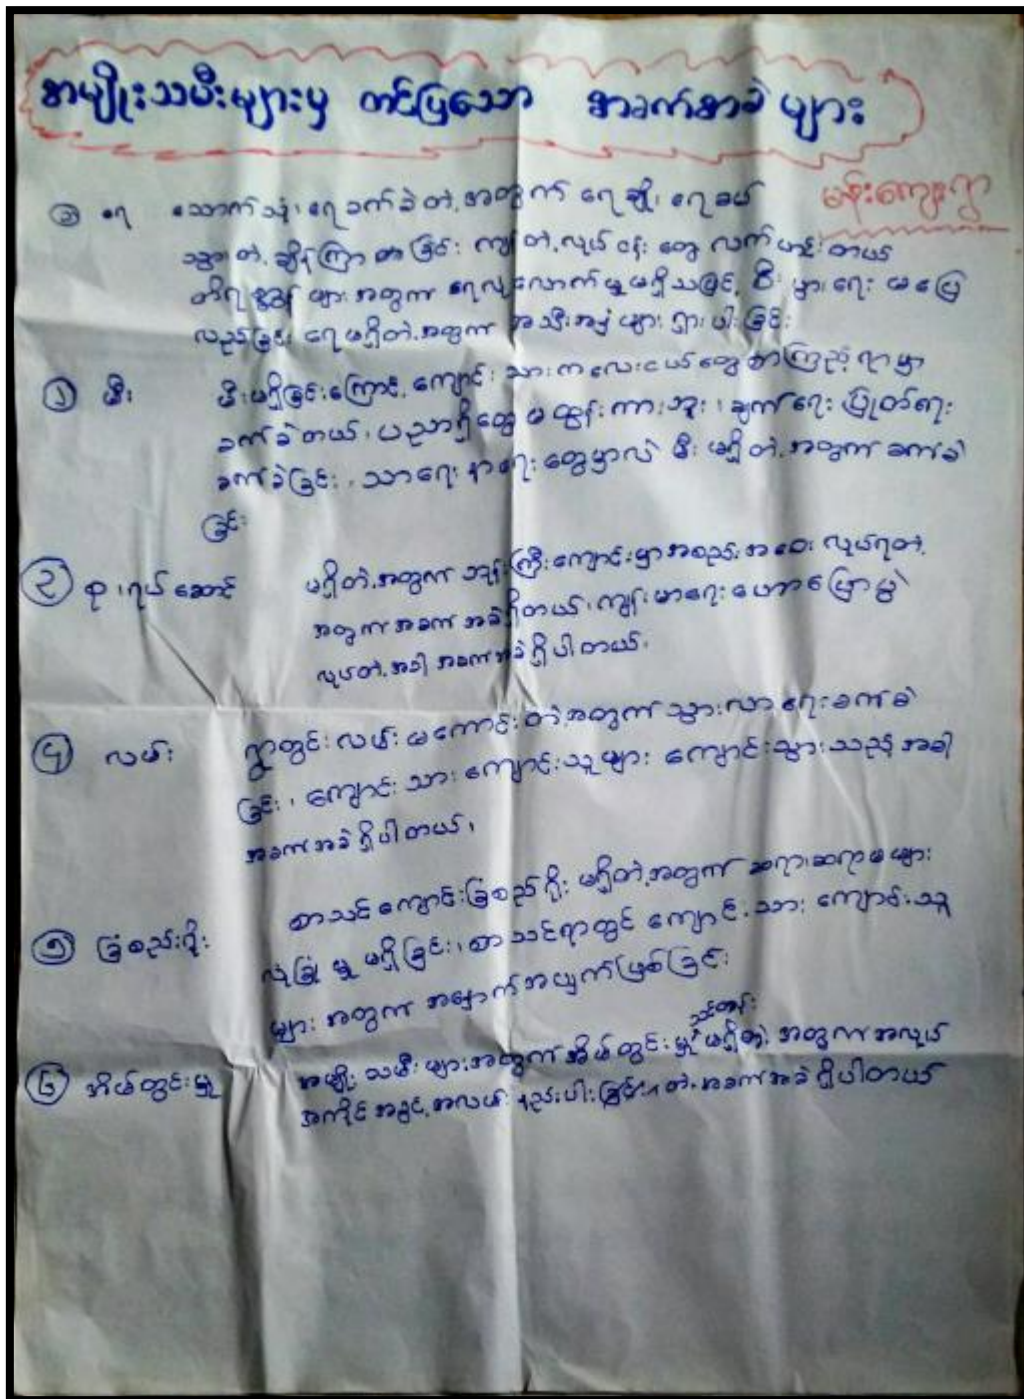 အမျိုးသမီးများမှ တင်ပြသော အခက်အခဲ များ
မန်းကျေးရွာ
၃ ရေ သောက်သုံး ရေ ခက်ခဲတဲ့ အတွက် ရေချိုး ရေခပ်
သွားတဲ့ ချိန်ကြာတာ ခြင်း ကျတဲ့ လုပ်ငန်း တွေ
တိရစ္ဆာန် များ အတွက် ရေလုံလောက်မှု မရှိသဖြင့် စီးပွားရေး မပြေ
လည်ခြင်း ရေမရှိတဲ့ အတွက် အသီးအနှံများ ရှားပါးခြင်း
၁ မီး မီးမရှိခြင်းကြောင့် ကျောင်းသား ကလေးငယ်တွေ စာကြည့်ရာမှာ
ခက်ခဲတယ်၊ ပညာရှိတွေ မထွန်းကားဘူး၊ ချက်ရေး ပြုတ်ရေး
ခက်ခဲခြင်း၊ သာရေး နာရေးတွေမှာလဲ မီးမရှိတဲ့ အတွက် ခက်ခဲ
ခြင်း
၂ စု၊ရပ်ဆောင် မရှိတဲ့ အတွက် ဘုန်းကြီးကျောင်းမှာ အစည်းအဝေး လုပ်ရတဲ့
အတွက် အခက်အခဲရှိတယ်၊ ကျန်းမာရေး ဟောပြောပွဲ
လုပ်တဲ့ အခါ အခက်အခဲရှိပါတယ်၊
၄ လမ်း ရွာတွင်းလမ်း မကောင်းတဲ့အတွက် သွားလာရေး ခက်ခဲ
ခြင်း၊ ကျောင်းသား ကျောင်းသူများ ကျောင်းသွားသည့်အခါ
အခက်အခဲရှိပါတယ်၊
၅ ခြံစည်းရိုး စာသင်ကျောင်းခြံစည်းရိုး မရှိတဲ့အတွက် ဆရာ၊ဆရာမများ
လုံခြုံမှု မရှိခြင်း၊ စာသင်ရာတွင် ကျောင်းသား ကျောင်းသူ
များ အတွက် အနှောက်အယှက်ဖြစ်ခြင်း
၆ အိမ်တွင်းမှု အမျိုးသမီးများအတွက် အိမ်တွင်းမှု သင်တန်း မရှိတဲ့ အတွက် အလုပ်
အကိုင် အခွင့်အလမ်း နည်းပါးခြင်း တဲ့ အခက်အခဲရှိပါတယ်